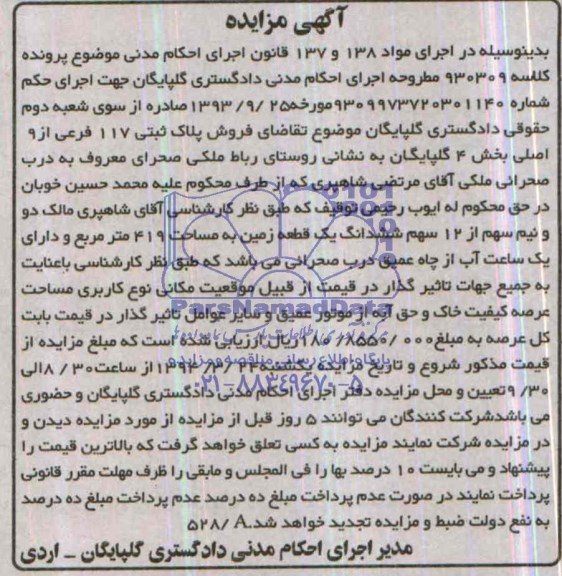 آگهی مزایده
بدینوسیله در اجرای مواد ۱۳۸ و ۱۳۷ قانون اجرای احکام مدنی موضوع پرونده
کلاسه ۹۳۰۳۰۹ مطروحه اجرای احکام مدنی دادگستری گلپایگان جهت اجرای حکم
شماره ۹۳۰۹۹۷۳۷۲۰۳۰۱۱۴۰ مورخه ۲۵ /۹/ ۱۳۹۳ صادره از سوی شعبه دوم
حقوقی دادگستری گلپایگان موضوع تقاضای فروش پلاک ثبتی ۱۱۷ فرعی از ۹
اصلی بخش ۴ گلپایگان به نشانی روستای رباط ملکی صحرای معروف به درب
صحرائی ملکی آقای مرتضی شاهپری که از طرف محکوم علیه محمد حسین خوبان
در حق محکوم له ایوب رحیمی توقیف که طبق نظر کارشناسی آقای شاهپری مالک دو
و نیم سهم از ۱۲ سهم ششدانگ یک قطعه زمین به مساحت ۴۱۹ متر مربع و دارای
یک ساعت آب از چاه عمیق درب صحرائی می باشد که طبق نظر کارشناسی باعنایت
به جمیع جهات تاثیر گذار در قیمت از قبیل موقعیت مکانی نوع کاربری مساحت
عرصه کیفیت خاک و حق آبه از موتور عمیق و سایر عوامل تاثیر گذار در قیمت بابت
کل عرصه به مبلغ ریال ارزیابی شده است که مبلغ مزایده از
قیمت مذکور شروع و تاریخ مزایده یکشنبه ۲۴ /۳/ ۱۳۹۴ از ساعت ۳۰ / ۸ الی
۳۰/ ۹ تعیین و محل مزایده دفتر اجرای احکام مدنی دادگستری گلپایگان و حضوری
می باشد شرکت کنندگان می توانند ۵ روز قبل از مزایده از مورد مزایده دیدن و
در مزایده شرکت نمایند مزایده به کسی تعلق خواهد گرفت که بالاترین قیمت را
پیشنهاد و می بایست ۱۰ درصد بها را فی المجلس و مابقی را ظرف مهلت مقرر قانونی
پرداخت نمایند در صورت عدم پرداخت مبلغ ده درصد عدم پرداخت مبلغ ده درصد
به نفع دولت ضبط و مزایده تجدید خواهد شد. ۵۲۸/ A
مدیر اجرای احکام مدنی دادگستری گلپایگان _ اردی
ParsNamadData
پایگاه اطلاع رسانی مناقصه و مزایده
۰۲۱-۸۸۳۴۹۶۷۰-۵